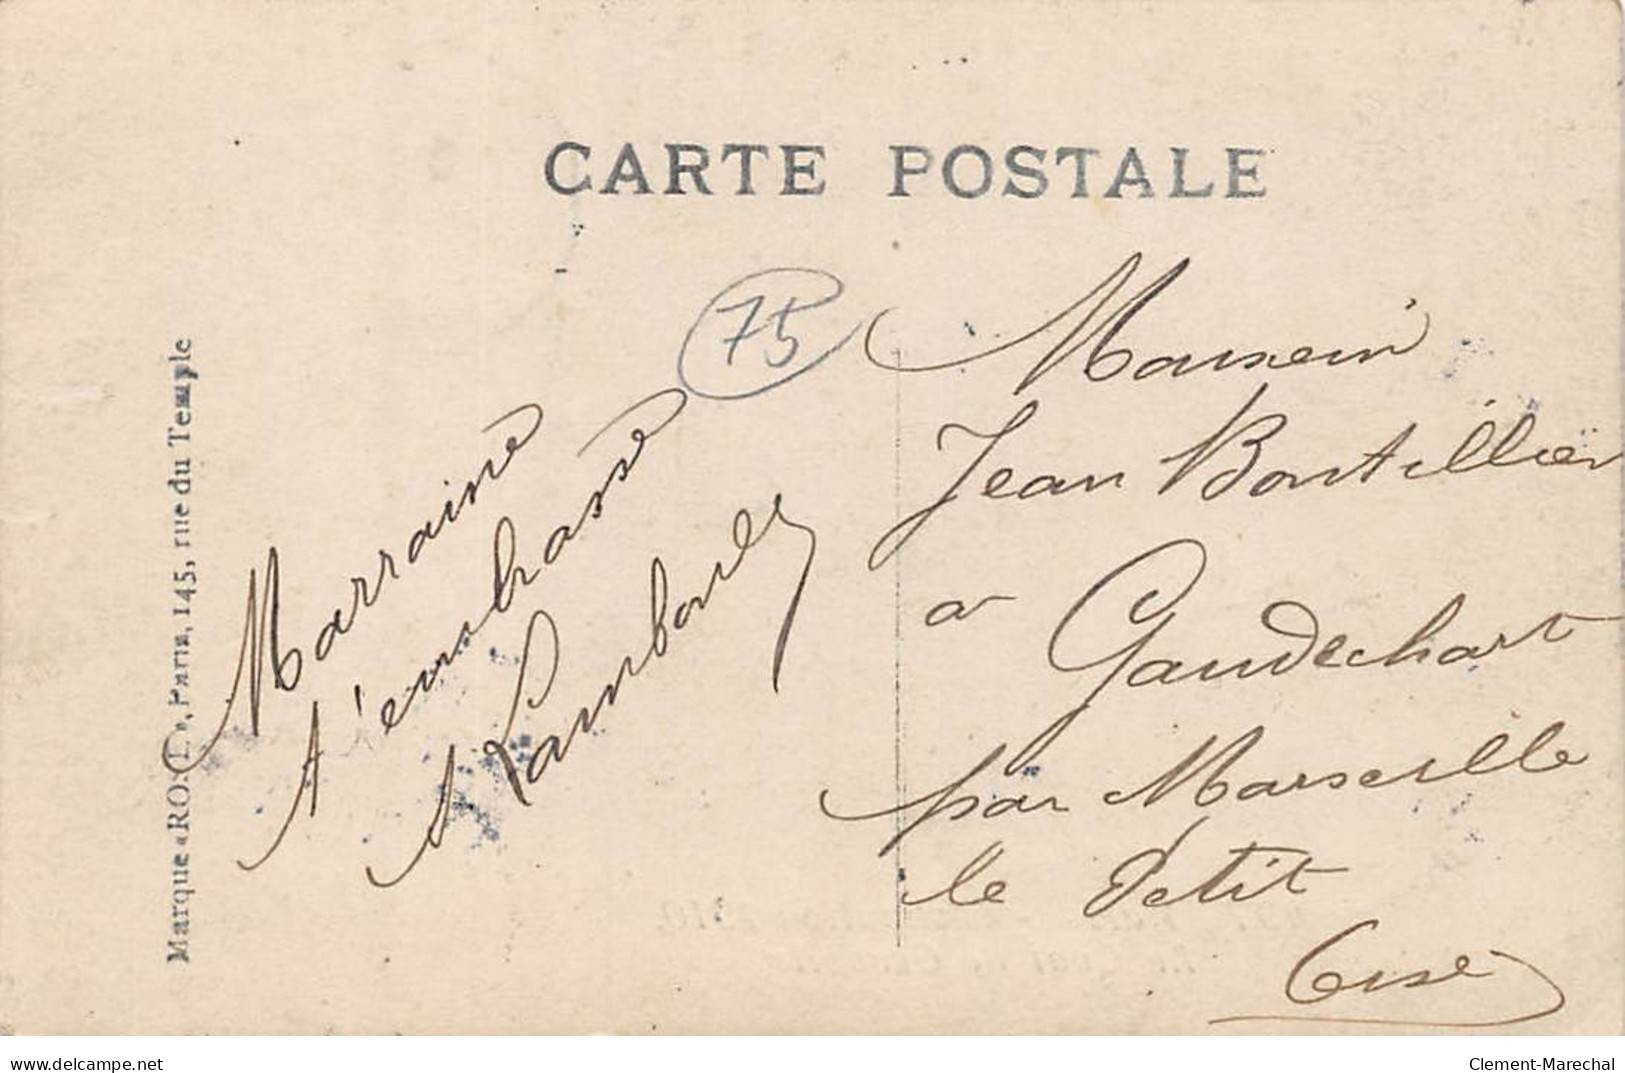 CARTE POSTALE
75
Marraine
t'embrasse
A Lambarey
Jean Boutillier
a Gaudechart
par Marseille
le Petit
Oise
Marque «ROSE», Paris, 145, rue du Temple
www.delcampe.net
Clement-Marechal